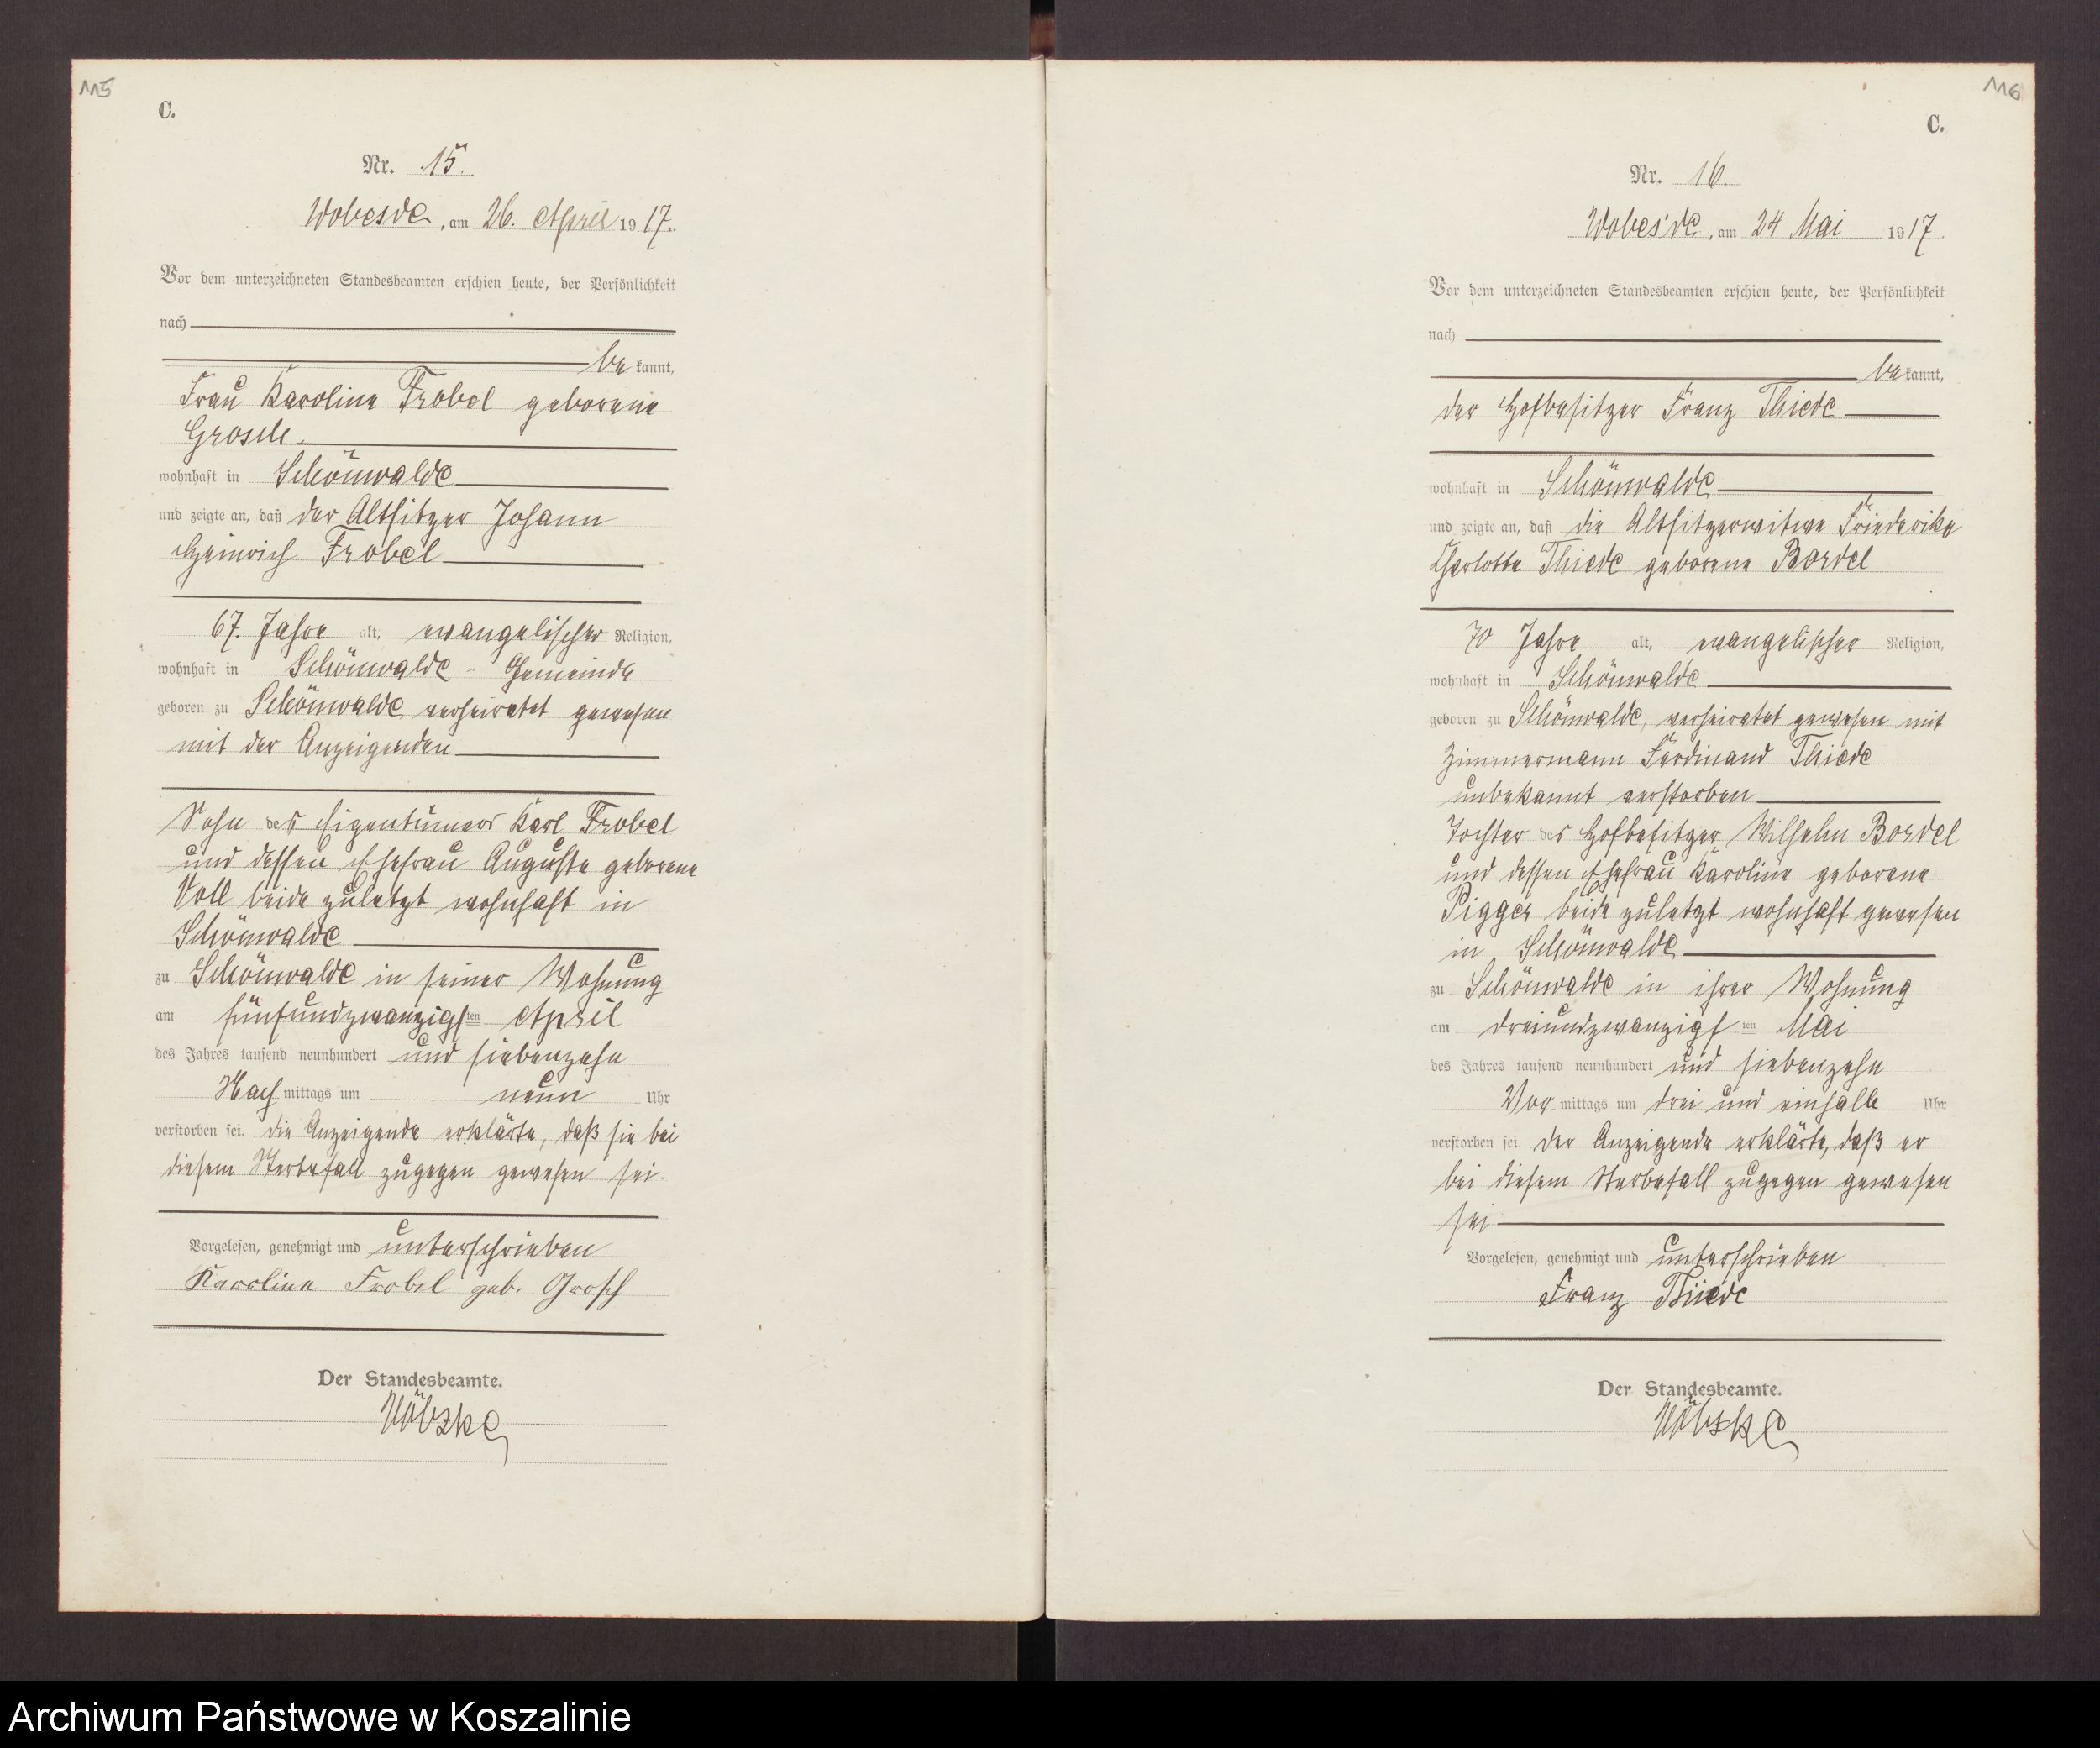 115
C.
Nr. 15.
Wobesde, am 26. April 1917.
Vor dem unterzeichneten Standesbeamten erschien heute, der Persönlichkeit
nach
be kannt,
Frau Karoline Frobel geborene
Grosch
wohnhaft in Schönwalde
und zeigte an, daß der Altsitzer Johann
Heinrich Frobel
67. Jahre alt, evangelischer Religion,
wohnhaft in Schönwalde - Gemeinde
geboren zu Schönwalde verheiratet gewesen
mit der Anzeigenden
Sohn des Eigentümers Karl Frobel
und dessen Ehefrau Auguste geborene
Voll beide zuletzt wohnhaft in
Schönwalde
zu Schönwalde in seiner Wohnung
am fünfundzwanzigsten April
des Jahres tausend neunhundert und siebenzehn
Nach mittags um neun Uhr
verstorben sei. Die Anzeigende erklärte, daß sie bei
diesem Sterbefall zugegen gewesen sei.
Vorgelesen, genehmigt und unterschrieben
Karoline Frobel geb. Grosch
Der Standesbeamte.
116
C.
Nr. 16.
Wobesde, am 24 Mai 1917.
Vor dem unterzeichneten Standesbeamten erschien heute, der Persönlichkeit
nach
be kannt,
der Hofbesitzer Franz Thiede
wohnhaft in Schönwalde
und zeigte an, daß die Altsitzerwitwe Friederike
Charlotte Thiede geborene Bardel
70 Jahre alt, evangelischer Religion,
wohnhaft in Schönwalde
geboren zu Schönwalde, verheiratet gewesen mit
Zimmermann Ferdinand Thiede
unbekannt verstorben
Tochter des Hofbesitzer Wilhelm Bordel
und dessen Ehefrau Karoline geborene
Pigger beide zuletzt wohnhaft gewesen
in Schönwalde
zu Schönwalde in ihrer Wohnung
am dreiundzwanzigsten Mai
des Jahres tausend neunhundert und siebenzehn
Vor mittags um drei und einhalb Uhr
verstorben sei. Der Anzeigende erklärte, daß er
bei diesem Sterbefall zugegen gewesen
sei
Vorgelesen, genehmigt und unterschrieben
Franz Thiede
Der Standesbeamte.
Archiwum Państwowe w Koszalinie